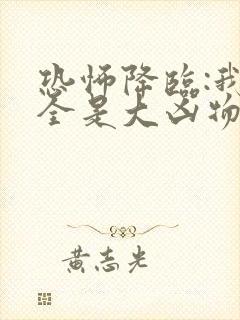 恐怖降臨:我
全是大凶物
黃志光